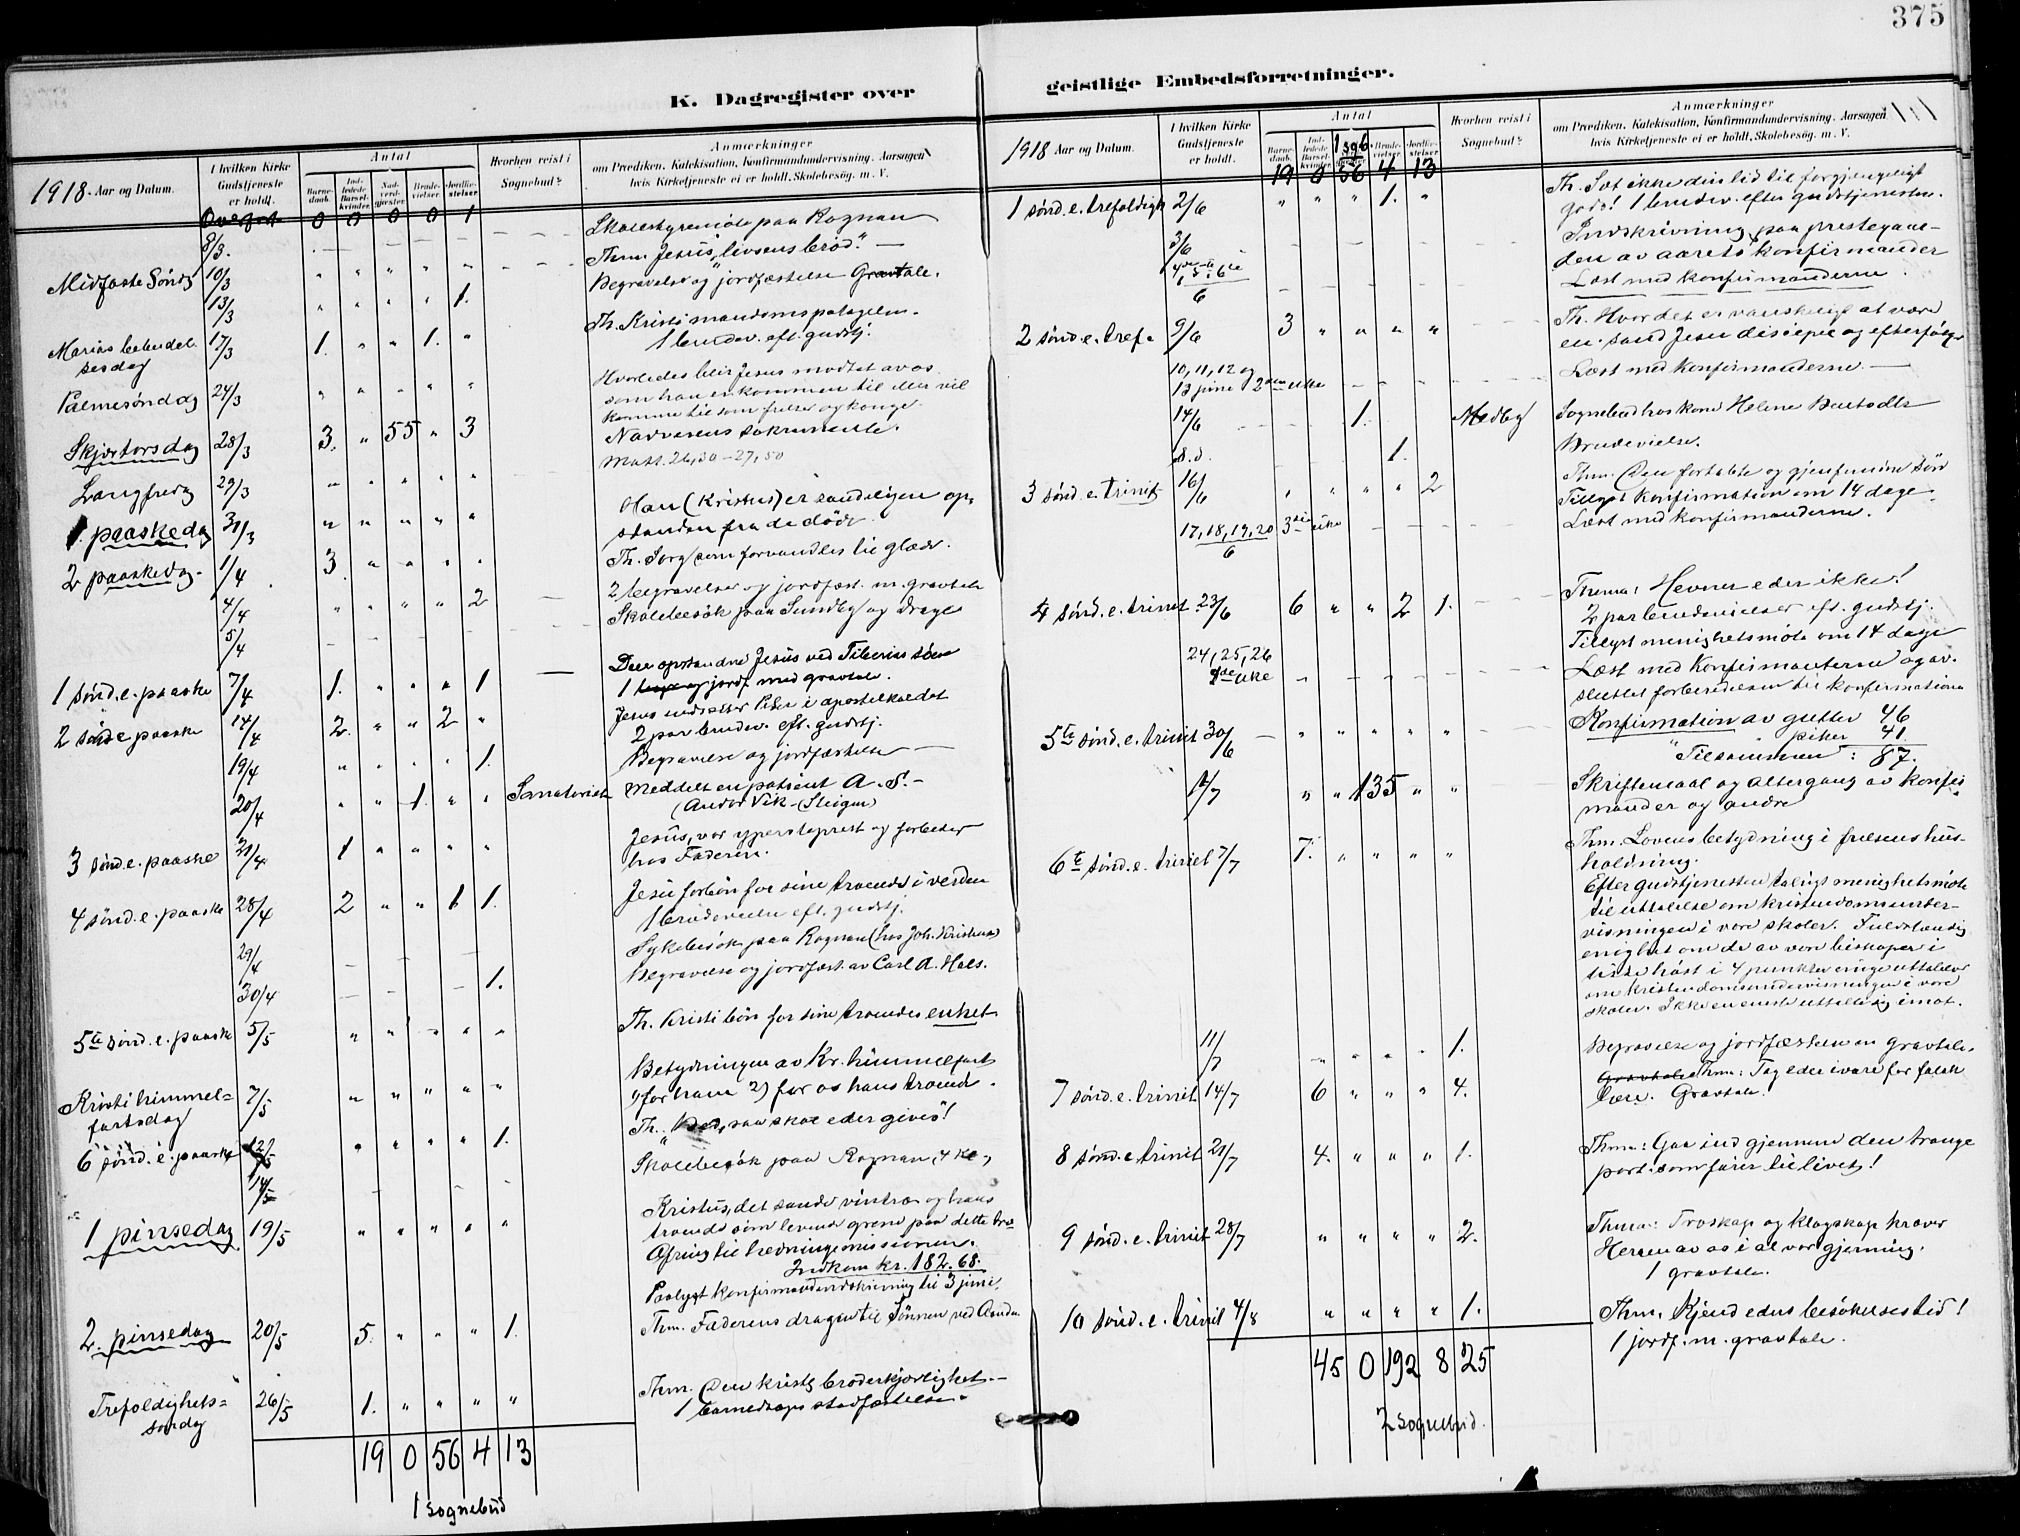 375
K. Dagregister over
geistlige Embedsforretninger.
1918. Aar og Datum.
I hvilken Kirke Gudstjeneste er holdt.
Antal
Barnedaab. Indledede Barselkvinder. Nadverdgjæster. Brudevielser. Jordfæstelser
Hvorhen reist i Sognebud?
Anmærkninger
om Prædiken, Katekisation, Konfirmandundervisning. Aarsagen
hvis Kirketjeneste ei er holdt, Skolebesøg. m. V.
Overført 0 0 0 0 1
8/3. Skolestyremøte paa Rognan
Midfaste Sønd 10/3 " " " " " Thm. Jesus, "livsens brød."
13/3 " " " " 1. Begravelse og jordfæstelse Gravtale.
Marias bebudel 17/3 1. " " 1. " Th. Kristi mandoms
sesdag 1 brudev. eft. gudstj.
Palmesøndag 24/3 " " " " " Hvorledes blir Jesus mødtet av os
som han er kommen til eller vil
komme til som frelser og konge.
Skjærtorsdag 28/3 3. " 55 " 3 Nadverens sakramente.
Langfredag 29/3 " " " " " Matt. 26,30-27,50
1. paaskedag 31/3 " " " " " Han (Kristus) er sandeligen op-
standen fra de døde.
2 paaskedag. 1/4 3. " " " " Th. Sorg som forvandles til glæde.
4/4 " " " " 2 2 begravelser og jordfæst. m. gravtale
5/4 Skolebesøk paa Sundby og Drage
1 sønd. e. paaske 7/4 1. " " " 1 Den opstandne Jesus ved Tiberias søen
1 jordf. med gravtale.
2 sønd e paaske 14/4 2. " " 2 " Jesus indsætter Peter i apostelkaldet
2 par brudev. eft. gudstj.
19/4 " " " " 1. Begravelse og jordfæstelse
20/4 " " 1. " " Sanatoriet Meddelt en patient A. S.
(Andor Vik - Steigen)
3 sønd. e. paaske 21/4 1 " " " " Jesus, vor ypersteprest og forbeder
hos Faderen.
4 sønd. e. paaske 28/4 2 " " 1 1. Jesu forbøn for sine troende i verden
1 brudevielse eft. gudstj.
29/4 Sykebesøk paa Rognan (hos Joh. Kristensen)
30/4 1. Begravelse og jordfæst. av Carl A. Hals.
5te sønd. e. paaske 5/5 " " " " " Th. Kristi bøn for sine troendes enhet
Kristi himmel= 7/5 " " " " " Betydningen av Kr. himmelfart
fartsdag 1) for ham 2) for os hans troende.
6 sønd. e. paaske 12/5 " " " " 1. Th. "Bed, saa skal eder gives"!
14/5 Skolebesøk paa Rognan, 4 kl.
1 pinsedag 19/5 " " " " " Kristus, det sande vintræ og hans
troende som levende grene paa dette træ
Ofring til hedningemissionen.
Indkom kr. 182.68.
Paalyst konfirmandindskrivning til 3 juni.
2. pinsedag 20/5 5. " " " 1. Thm. Faderens dragen til Sønnen ved Aanden
Trefoldighets= 26/5 1. " " " " Thm. Den kristl. broderkjærlighet.
søndag 1 barnedaaps stadfæstelse.
19 0 56 4 13
1 sognebud
1918 Aar og Datum.
I hvilken Kirke Gudstjeneste er holdt.
Antal
Hvorhen reist i Sognebud?
Anmærkninger
om Prædiken, Katekisation, Konfirmandundervisning. Aarsagen
hvis Kirketjeneste ei er holdt, Skolebesøg. m. V.
19 0 56 4 13
1 sønd. e. trefoldigh 2/6 " " " 1. " Th. Sæt ikke din lid til forgjængeligt
gods! 1 brudev. efter gudstjenesten.
3/6 Indskrivning paa prestegaar-
den av aarets konfirmander
6 Læst med konfirmanderne
2 sønd. e. tref. 9/6 3 " " " " Th. Hvor det er vanskeligt at være
en sand Jesu discipel og efterfølger
10, 11, 12 og
13 juni 2den uke Læst med konfirmanderne.
14/6 1. Medby Sognebud hos kone Helene
s. d. 1. Brudevielse.
3 sønd. e. trinit. 16/6 " " " " 2 Thm. Den fortabte og gjenfundne søn
Tillyst konfirmation om 14 dage.
17, 18, 19, 20/6 3die uke Læst med konfirmanderne.
4 sønd. e. trinit 23/6 6 " " 2 1. Thema: Hevner eder ikke!
2 par brudevielser eft. gudstj.
Tillyst menighetsmøte om 14 dage
24, 25, 26
4de uke Læst med konfirmanterne og av-
sluttet forberedelsen til konfirmation
5te sønd. e. trinit 30/6 " " " " " Konfirmation av gutter 46
" piker 41.
Tilsammen: 87.
1/7 " " 135 " " Skriftemaal og altergang av konfir
mander og andre
6te sønd. e. trinit 7/7 7. " " " " Thm. Lovens betydning i frelsens hus-
holdning.
Efter gudstjenesten menighetsmøte
til uttalelse om kristendomsunder-
visningen i vore skoler. Fuldstændig
enighet om de av vore biskoper i
siste høst i 4 punkter uttalelser
om kristendomsundervisningen i vore
skoler. Ikke en eneste uttalte sig imot.
11/7 " " " " 1. Begravelse og jordfæstelse m gravtale.
7 sønd. e. trinit. 14/7 6 " " " 4. Thm: Tag eder ivare for falsk
lære. Gravtale!
8 sønd. e trinit 21/7 4. " " " 1. Thm: Gaa ind gjennem den trange
port som fører til livet!
9 sønd. e. trinit 28/7 " " " " 2. Thma: Troskap og klogskap kræver
Herren av os i al vor gjerning.
1 gravtale.
10 sønd. e. trinit 4/8 " " " " 1. Thm. Kjend eders besøkelsestid!
1 jordf. m. gravtale.
45 0 192 8 25
2 sognebud.